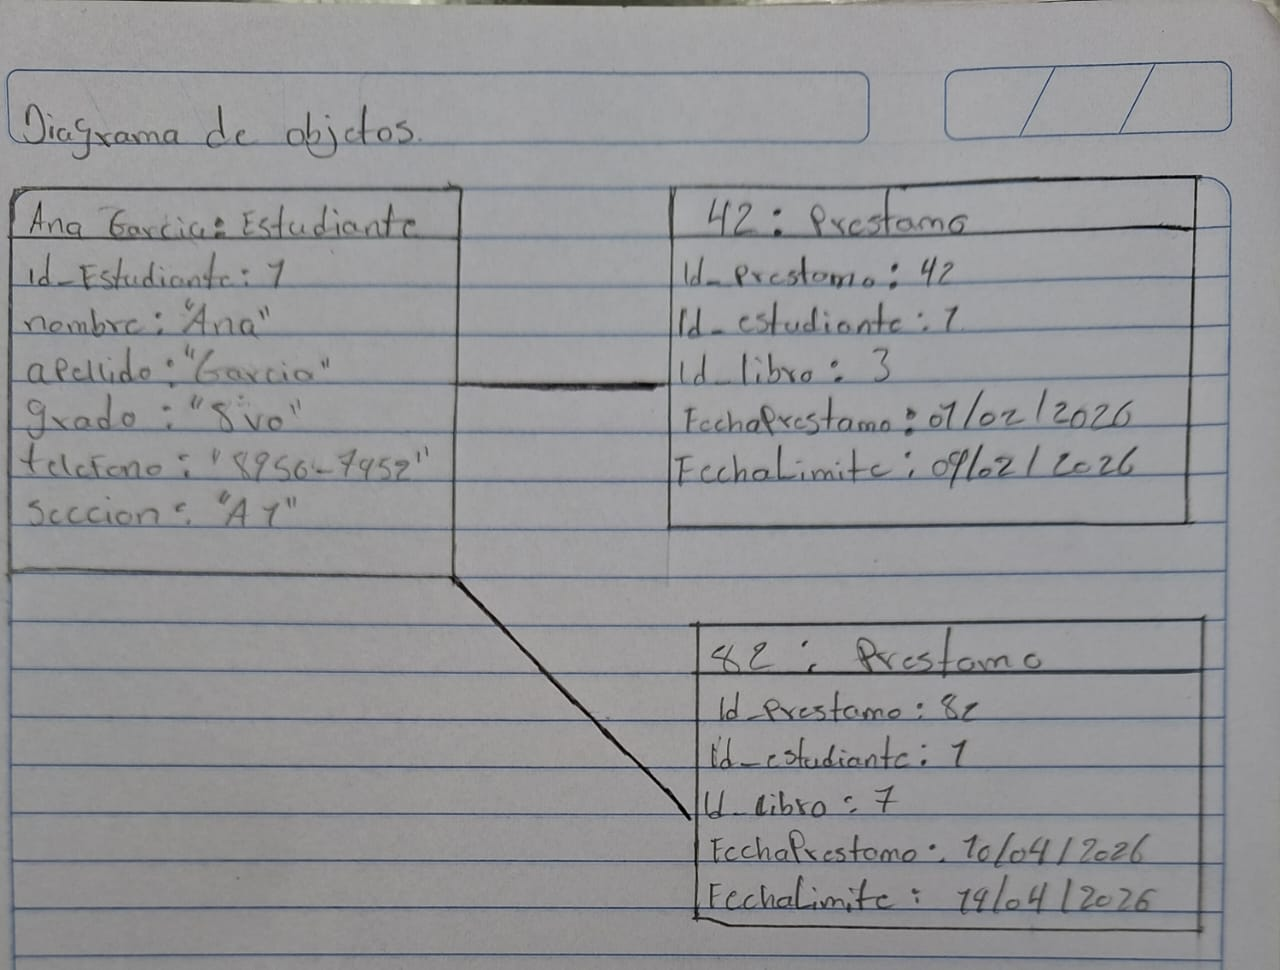 Diagrama de objetos.
Ana Garcia: Estudiante
Id_Estudiante: 1
nombre: "Ana"
apellido: "Garcia"
grado: "8ivo"
telefono: "8956-7952"
Seccion: "A1"
42: Prestamo
Id_prestamo: 42
Id_estudiante: 1
Id_libro: 3
FechaPrestamo: 07/02/2026
FechaLimite: 09/02/2026
82: Prestamo
Id_Prestamo: 82
Id_estudiante: 1
Id_libro: 7
FechaPrestamo: 10/04/2026
FechaLimite: 14/04/2026